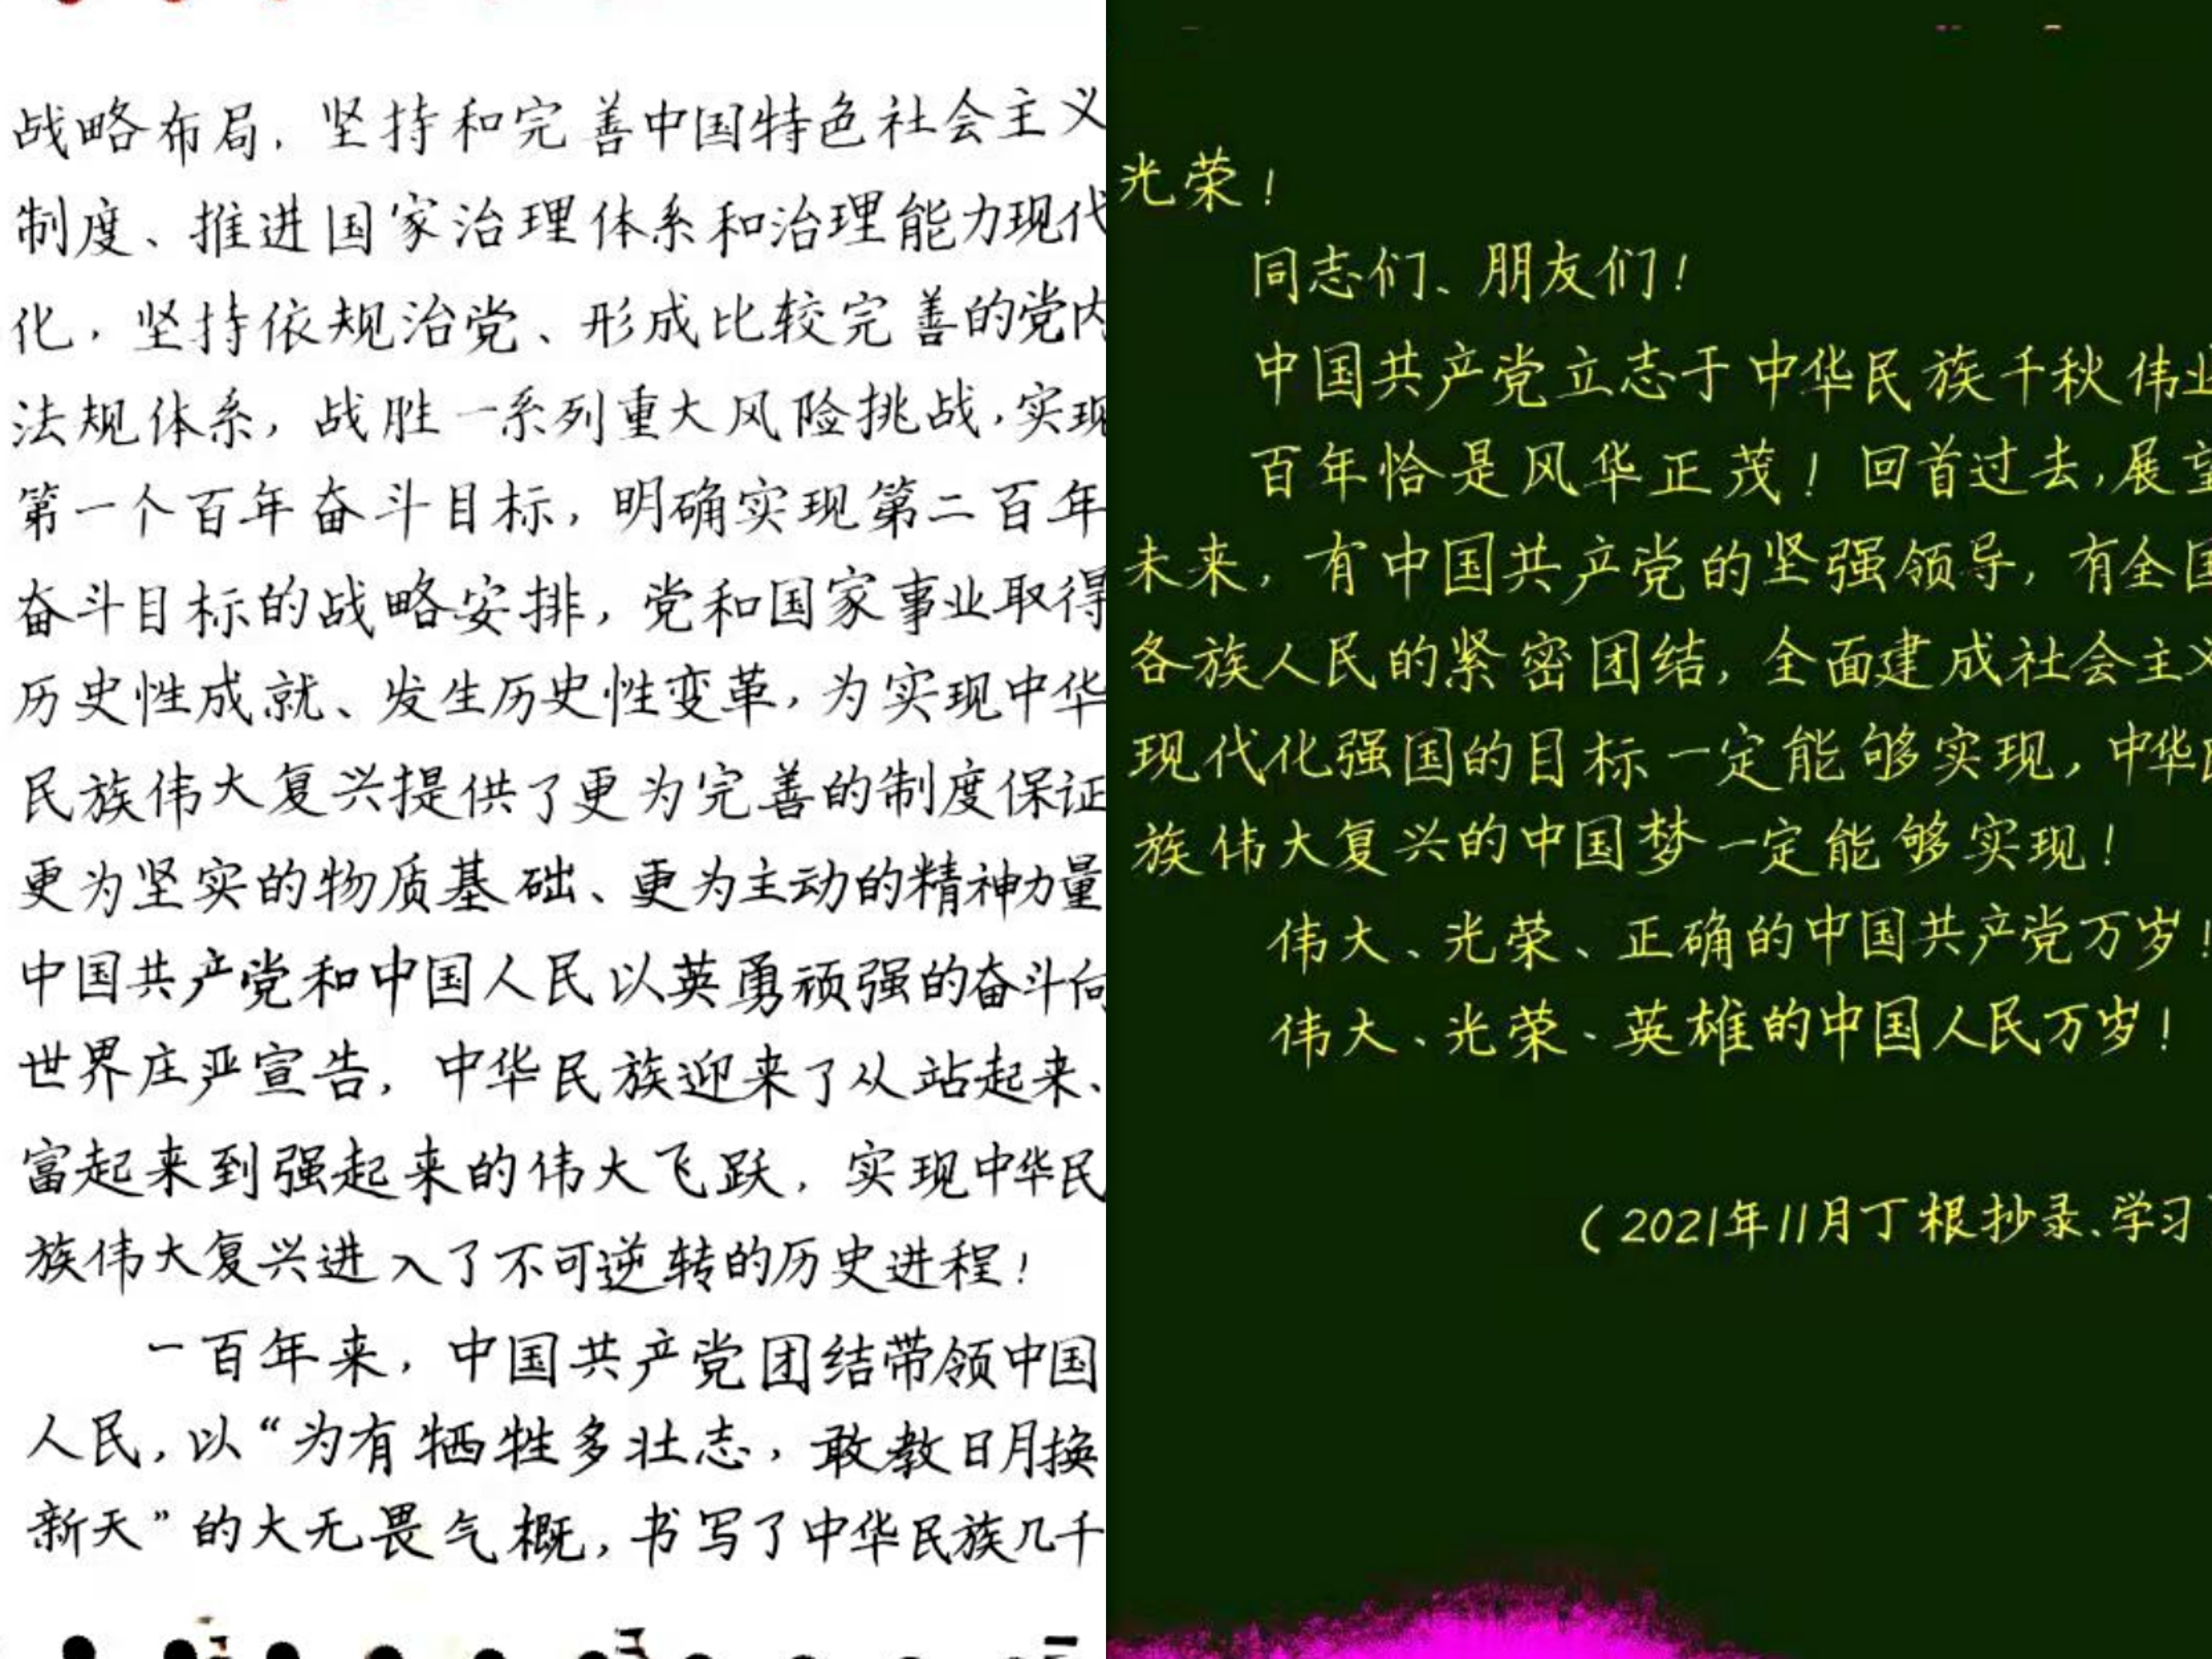 战略布局，坚持和完善中国特色社会主义
制度、推进国家治理体系和治理能力现代
化，坚持依规治党、形成比较完善的党内
法规体系，战胜一系列重大风险挑战，实现
第一个百年奋斗目标，明确实现第二百年
奋斗目标的战略安排，党和国家事业取得
历史性成就、发生历史性变革，为实现中华
民族伟大复兴提供了更为完善的制度保证
更为坚实的物质基础、更为主动的精神力量
中国共产党和中国人民以英勇顽强的奋斗向
世界庄严宣告，中华民族迎来了从站起来、
富起来到强起来的伟大飞跃，实现中华民
族伟大复兴进入了不可逆转的历史进程！
一百年来，中国共产党团结带领中国
人民，以“为有牺牲多壮志，敢教日月换
新天”的大无畏气概，书写了中华民族几千
光荣！
同志们、朋友们！
中国共产党立志于中华民族千秋伟业
百年恰是风华正茂！回首过去，展望
未来，有中国共产党的坚强领导，有全国
各族人民的紧密团结，全面建成社会主义
现代化强国的目标一定能够实现，中华民
族伟大复兴的中国梦一定能够实现！
伟大、光荣、正确的中国共产党万岁！
伟大、光荣、英雄的中国人民万岁！
（2021年11月丁根抄录、学习